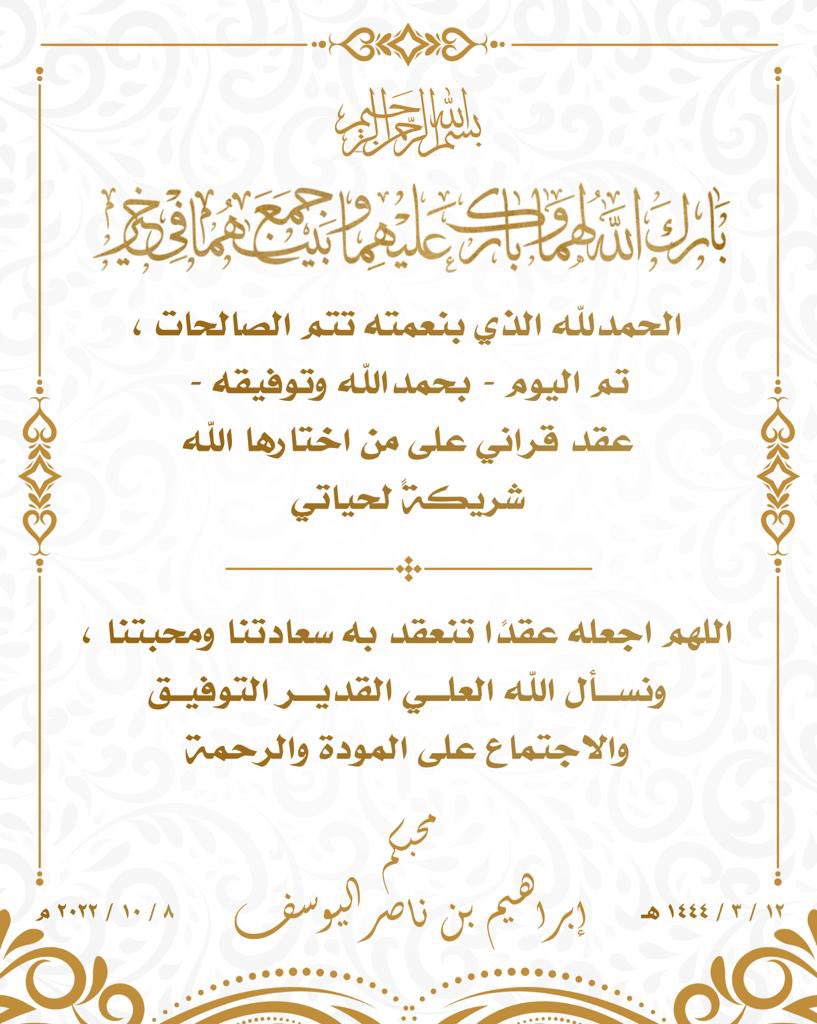 بسم الله الرحمن الرحيم
بَارَكَ اللهُ لهُما وبارك عليهِما وجمَعَ بينهُما في خيرٍ
الحمدلله الذي بنعمته تتم الصالحات ،
تم اليوم - بحمدالله وتوفيقه -
عقد قراني على من اختارها الله
شريكةً لحياتي
اللهم اجعله عقدًا تنعقد به سعادتنا ومحبتنا ،
ونسـأل الله العلـي القديـر التوفيـق
والاجتماع على المودة والرحمة
محبكم
إبراهيم بن ناصر اليوسف
١٢ / ٣ / ١٤٤٤ هـ
٨ / ١٠ / ٢٠٢٢ م